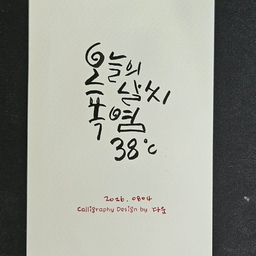 오늘의
날씨
폭염
38°C
2026. 0804
Calligraphy Design by 다운